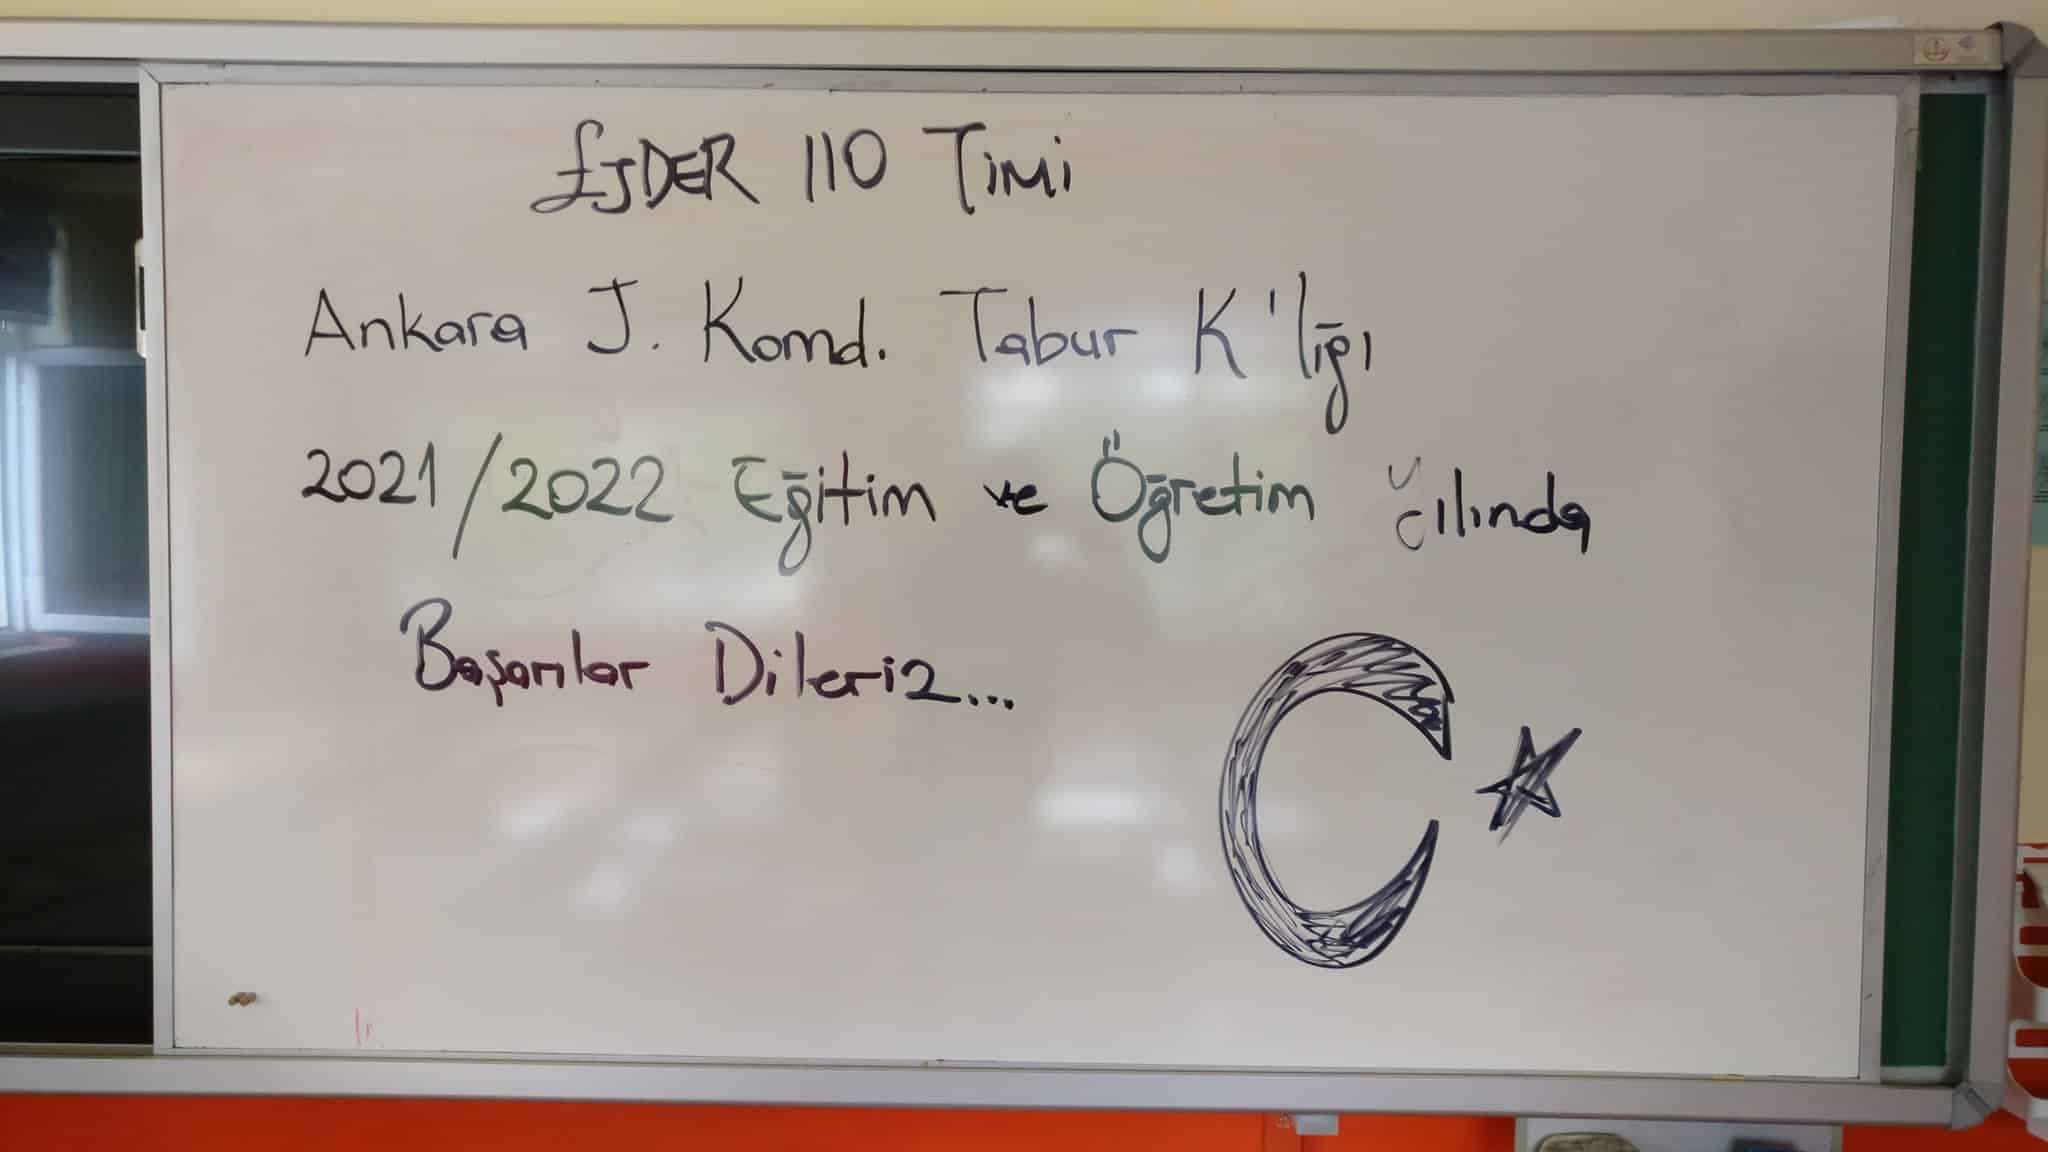 EJDER 110 Timi
Ankara J. Komd. Tabur K'lığı
2021/2022 Eğitim ve Öğretim Yılında
Başarılar Dileriz...